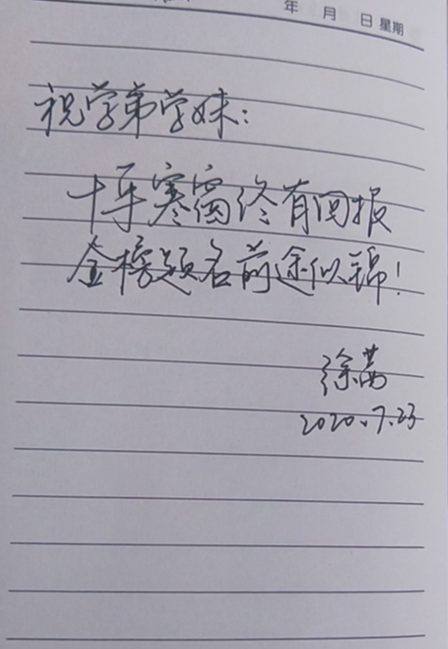 年 月 日 星期
祝学弟学妹:
十年寒窗终有回报
金榜题名前途似锦!
徐茜
2020.7.23